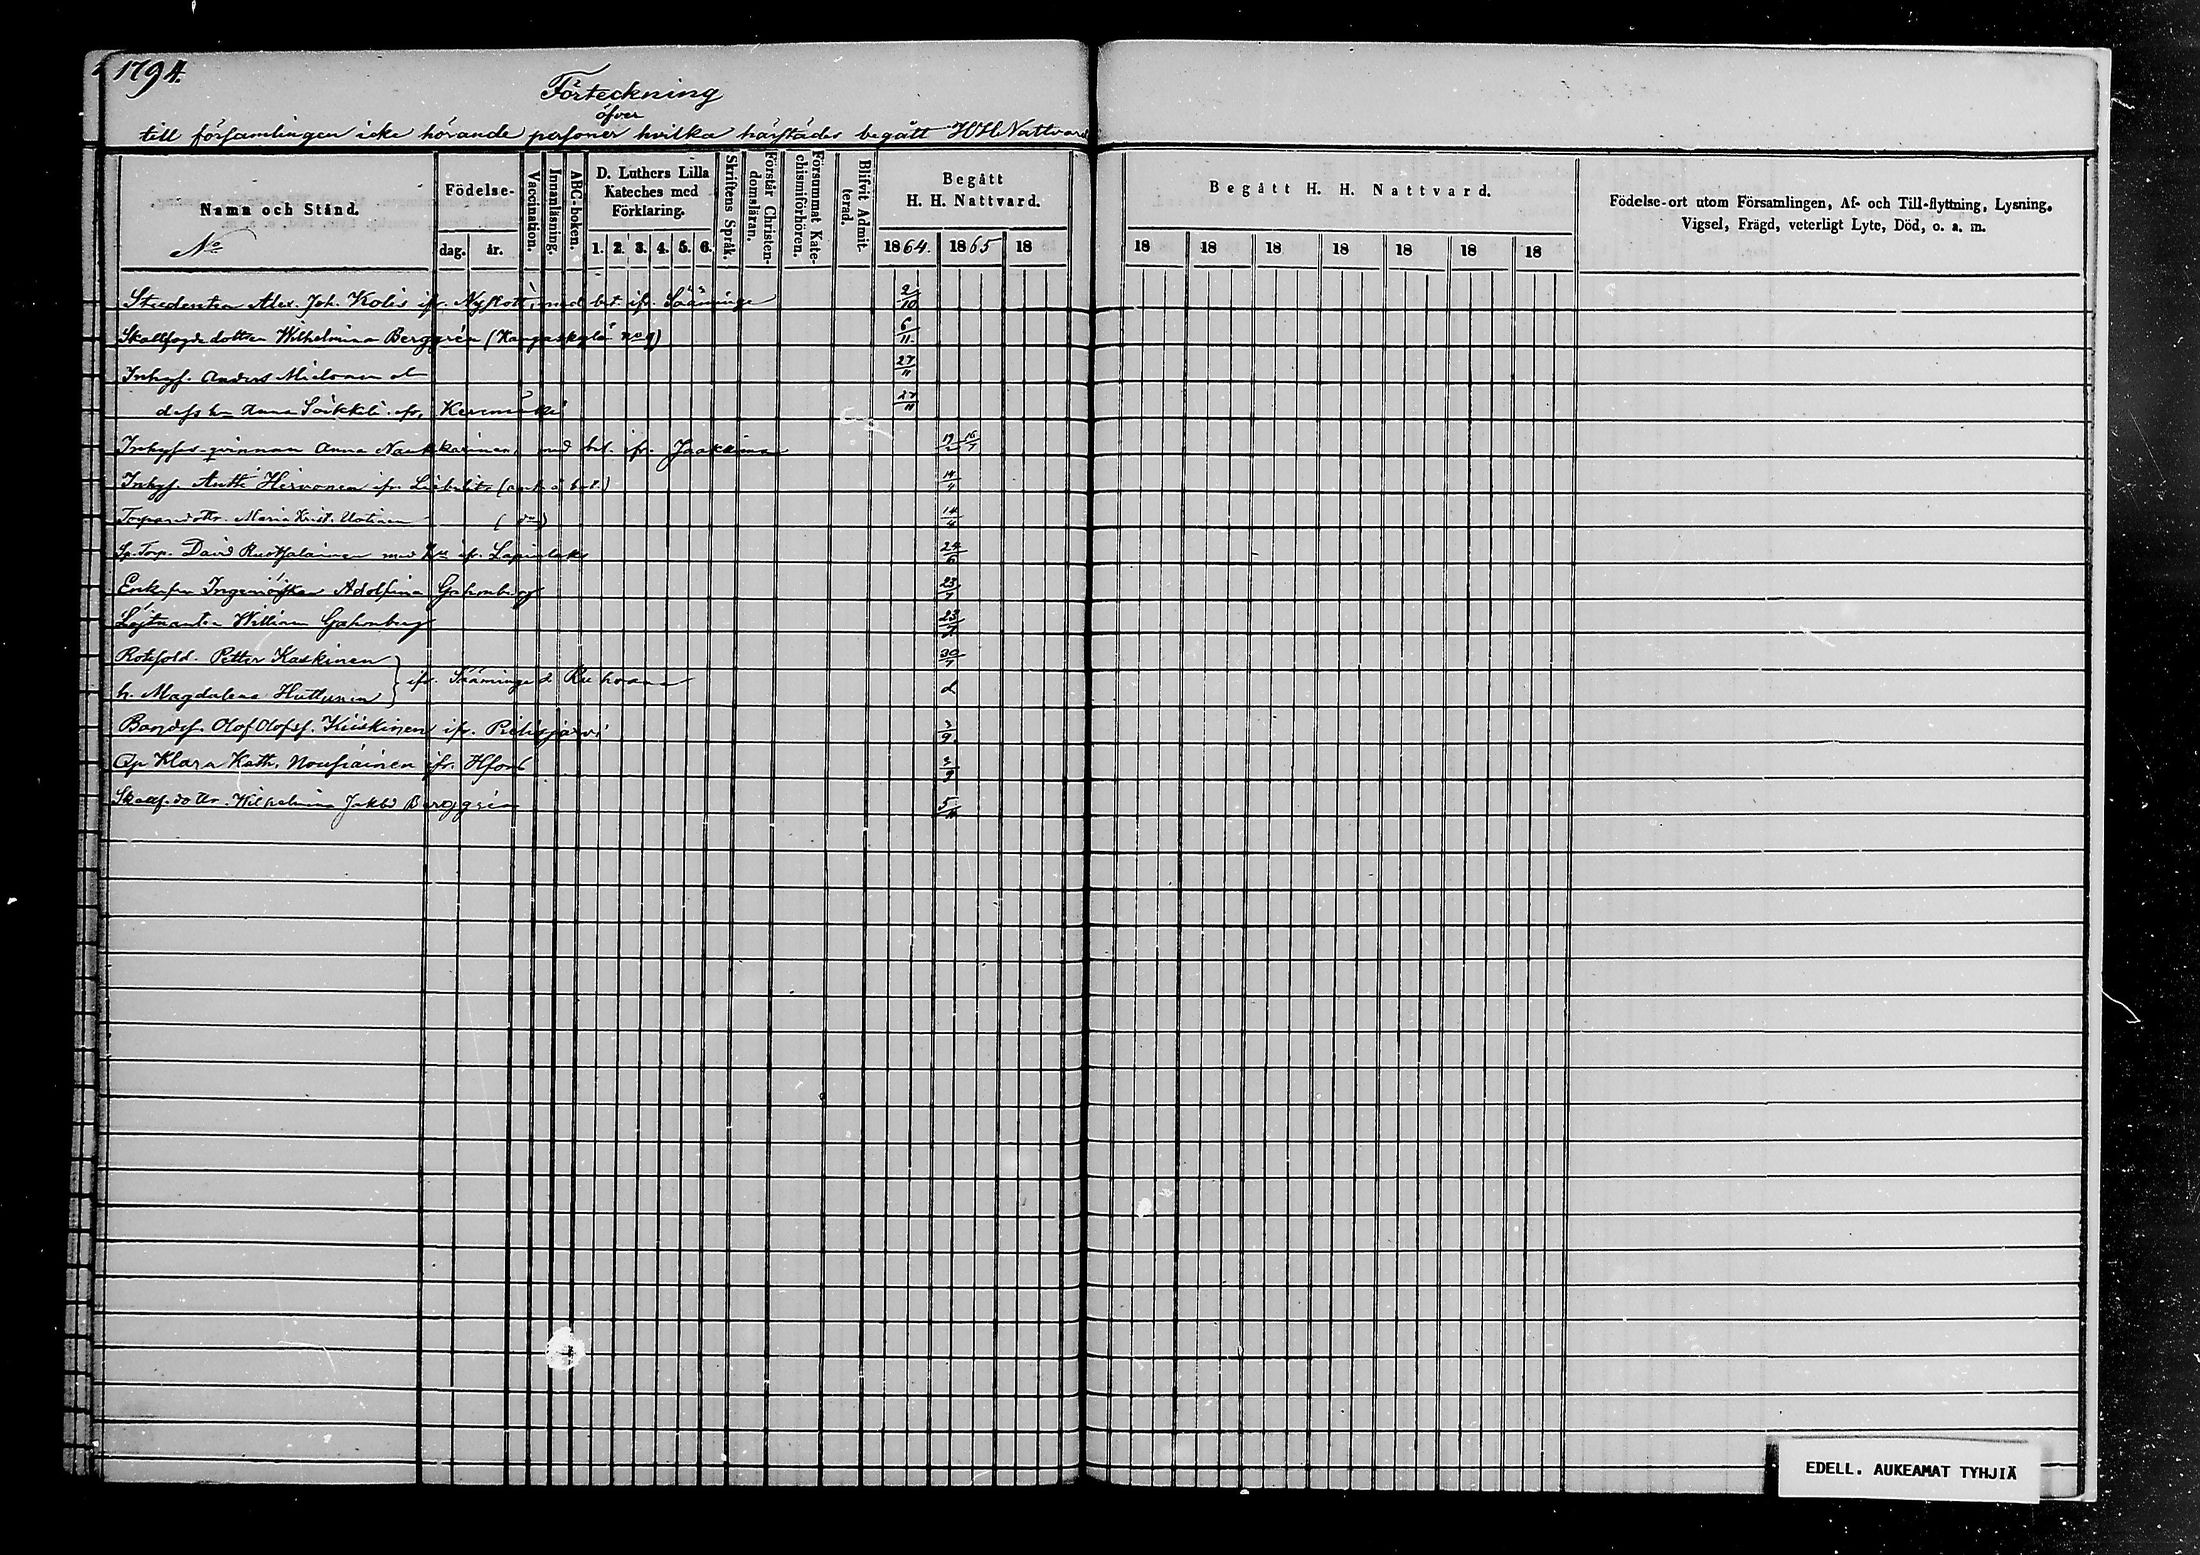 1794.
Förteckning
öfver
till församlingen icke hörande personer hvilka härstädes begått H H Nattvard
Namn och Stånd.
No
Födelse-
dag. år.
Vaccination.
Innanläsning.
ABC-boken.
D. Luthers Lilla
Kateches med
Förklaring.
1. 2. 3. 4. 5. 6.
Skriftens Språk.
Förstår Christen-
domsläran.
Försummat Kate-
chismiförhören.
Blifvit Admit-
terad.
Begått
H. H. Nattvard.
1864. 1865 18
Begått H. H. Nattvard.
18 18 18 18 18 18 18
Födelse-ort utom Församlingen, Af- och Till-flyttning, Lysning,
Vigsel, Frägd, veterligt Lyte, Död, o. a. m.
Studenten Alex. Joh. Kolis ifr. Nyslott, med bet. ifr. Sääminge 2/10
Skallfogde dottren Wilhelmina Berggrén (Kangaskylä No 9) 6/11
Inhys. Anders Mielonen o 27/11
dess h Anna Soikkeli ifr. Kerimäki 27/11
Inhyses-qvinnan Anna Naukkarinen med bet. ifr. Jaakkima 19/2 16/7
Inhys. Antti Hirvonen ifr. Libelits 14/4
Torparedottr. Maria Krist. Uotinen (do) 14/4
Torp. David Ruotsalainen med ifr. Lapinlaks 24/6
Enkefru Adolfina Gahmberg 23/7
Löjtnanten William Gahmberg 23/7
Rotesold. Petter Kaskinen 30/7
h. Magdalena Huttunen } ifr. Sääminge d
Bondes. Olof Olofs. Kiiskinen ifr. Pielisjärvi 3/9
Klara Kath. Nousiainen ifr. Hfors 3/9
Skallf. dottr. Wilhelmina Jakbd Berggrén 5/11
EDELL. AUKEAMAT TYHJIÄ